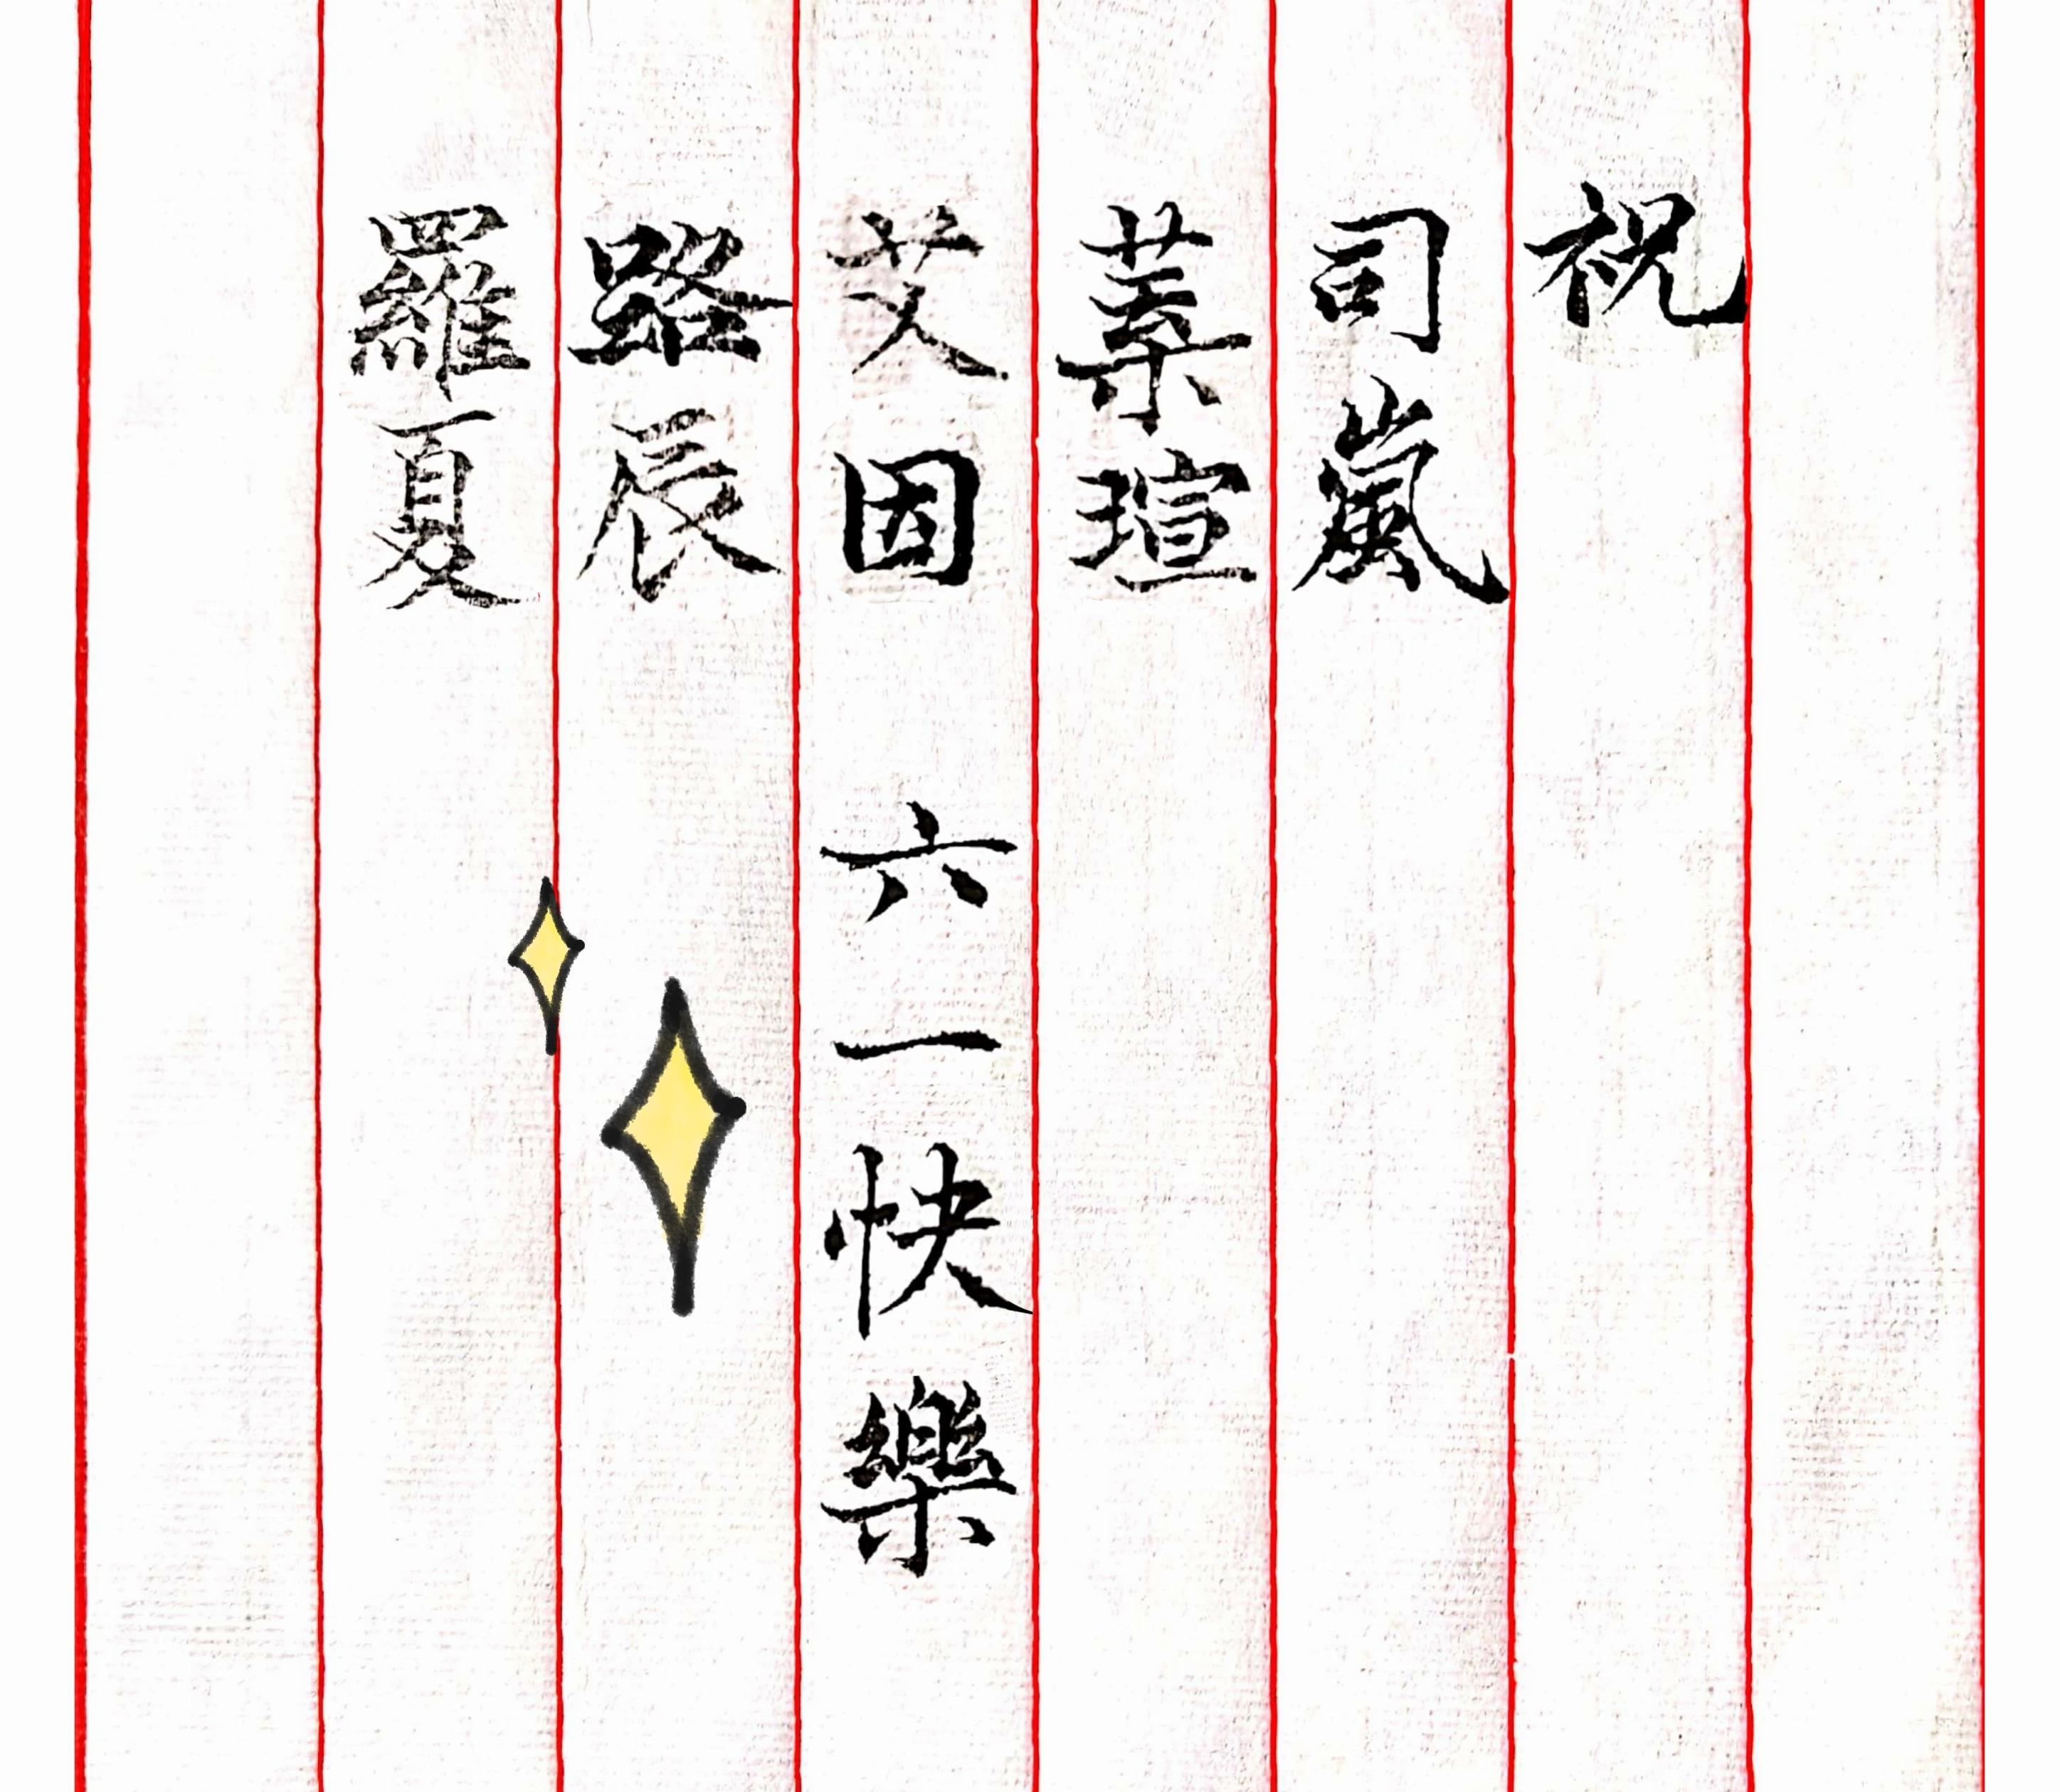 祝
司嵐
葉瑄
艾因
路辰
羅夏
六一快樂